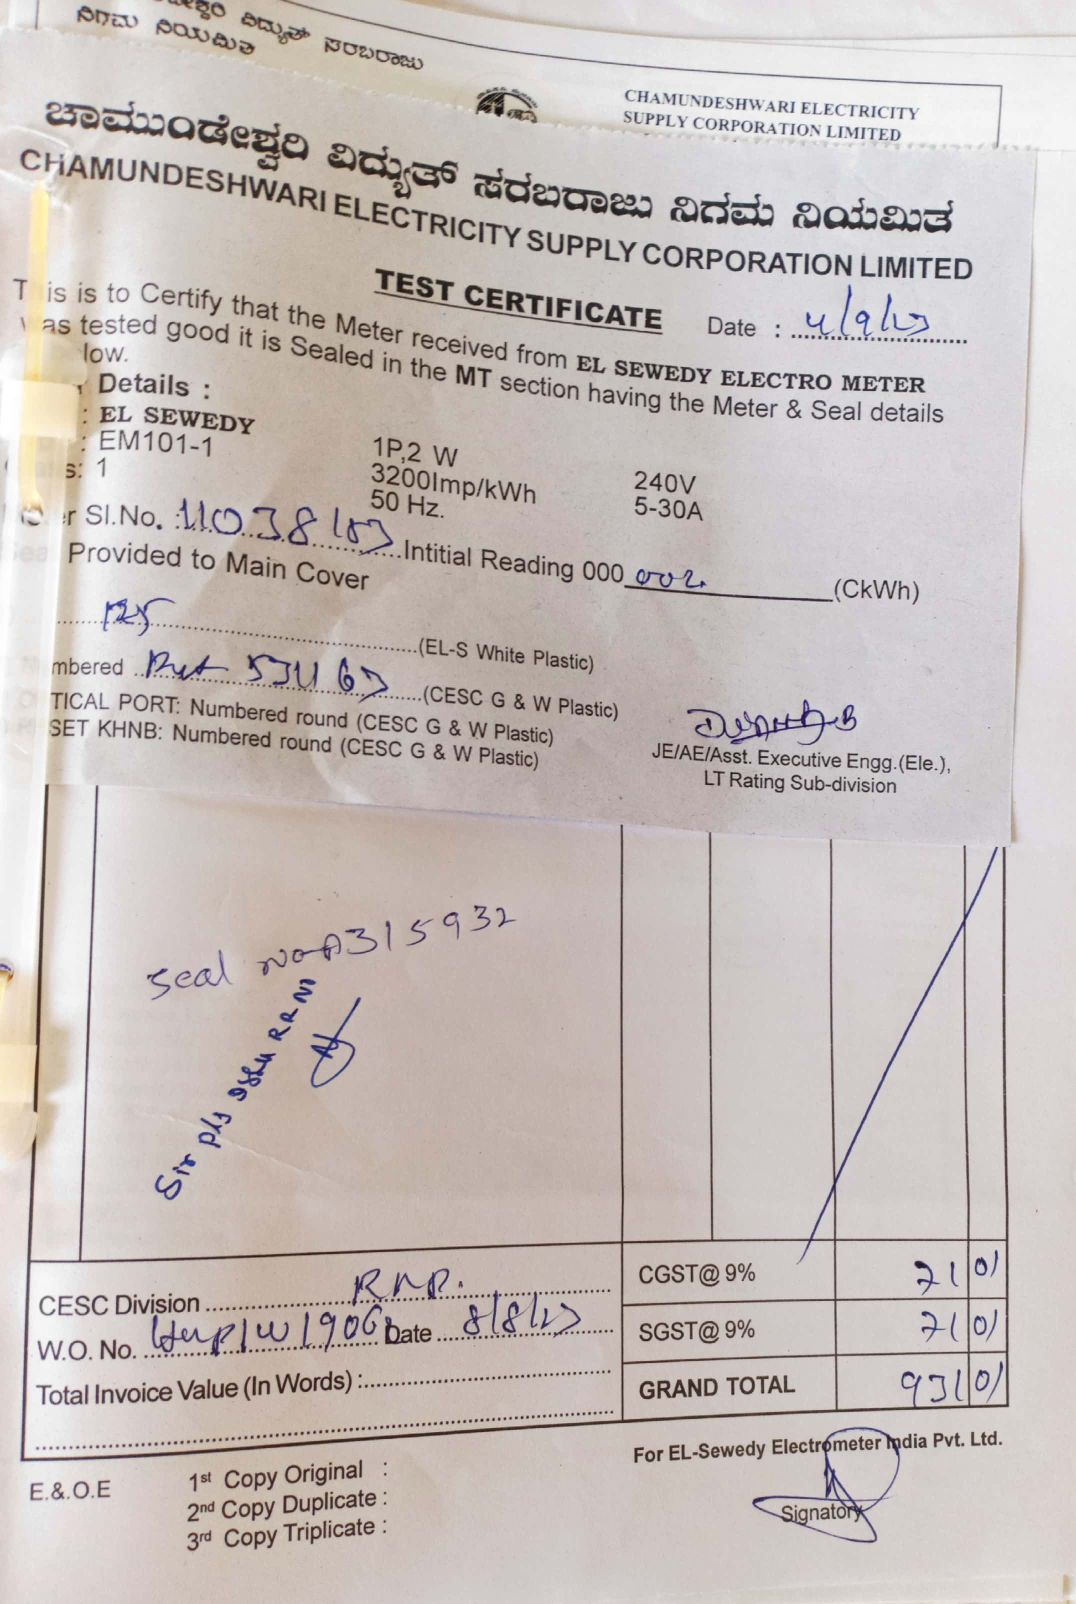 ವಿದ್ಯುತ್ ಸರಬರಾಜು
ನಿಗಮ ನಿಯಮಿತ
CHAMUNDESHWARI ELECTRICITY
SUPPLY CORPORATION LIMITED
ಚಾಮುಂಡೇಶ್ವರಿ ವಿದ್ಯುತ್ ಸರಬರಾಜು ನಿಗಮ ನಿಯಮಿತ
CHAMUNDESHWARI ELECTRICITY SUPPLY CORPORATION LIMITED
TEST CERTIFICATE
Date :
This is to Certify that the Meter received from EL SEWEDY ELECTRO METER
was tested good it is Sealed in the MT section having the Meter & Seal details
low.
Details :
: EL SEWEDY
: EM101-1 1P,2 W 240V
s: 1 3200Imp/kWh 5-30A
50 Hz.
r Sl.No. : Intitial Reading 000 002 (CkWh)
Provided to Main Cover
125 (EL-S White Plastic)
mbered (CESC G & W Plastic)
TICAL PORT: Numbered round (CESC G & W Plastic)
SET KHNB: Numbered round (CESC G & W Plastic)
JE/AE/Asst. Executive Engg.(Ele.),
LT Rating Sub-division
Seal No A315932
Sir pls
CGST@ 9% 71 01
CESC Division
SGST@ 9% 71 01
W.O. No. Date 8/8/17
Total Invoice Value (In Words) :
GRAND TOTAL 931 01
For EL-Sewedy Electrometer India Pvt. Ltd.
Signatory
E.&.O.E
1st Copy Original :
2nd Copy Duplicate :
3rd Copy Triplicate :